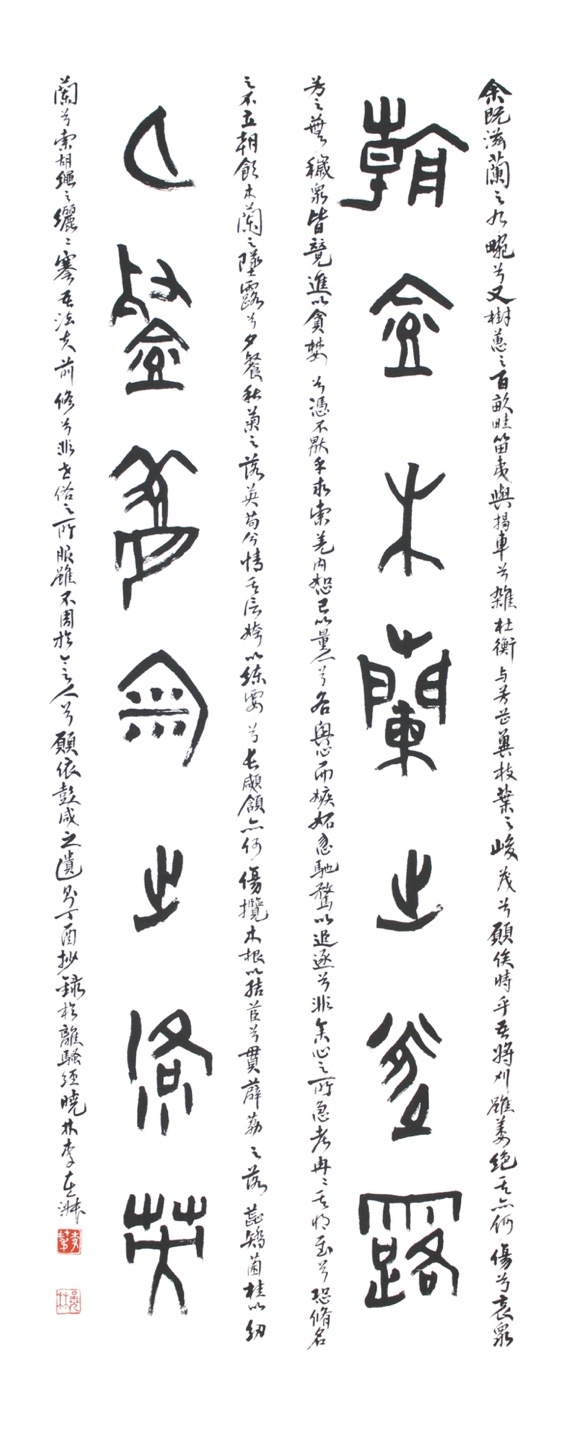 余既滋蘭之九畹兮又樹蕙之百畝畦留夷與揭車兮雜杜衡与芳芷冀枝葉之峻茂兮願俟時乎吾將刈雖萎絕其亦何傷兮哀眾
朝飲木蘭之墜露
芳之蕪穢眾皆競進以貪婪兮憑不厭乎求索羌內恕己以量人兮各興心而嫉妬忽馳騖以追逐兮非余心之所急老冉〻其將至兮恐脩名
之不立朝飲木蘭之墜露兮夕餐秋菊之落英苟余情其信姱以練要兮長顑頷亦何傷攬木根以結茝兮貫薜荔之落蕊矯菌桂以紉
夕餐秋菊之落英
蘭兮索胡繩之纚〻謇吾法夫前修兮非世俗之所服雖不周於今之人兮願依彭咸之遺則丁酉抄錄於離騷經曉林李在